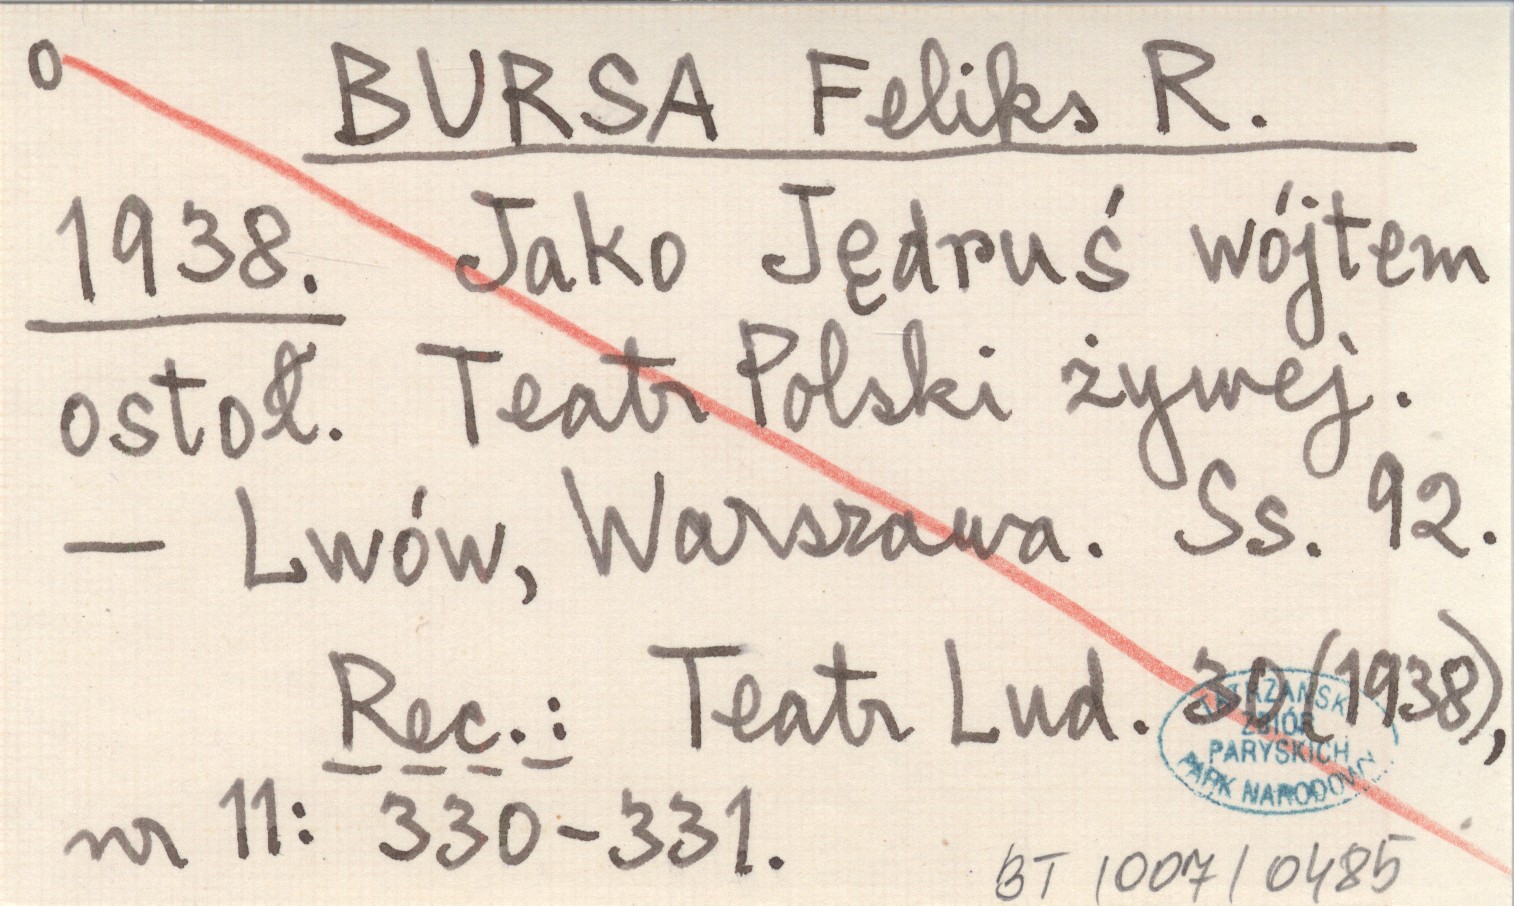 o BURSA Feliks R.
1938. Jako Jędruś wójtem
ostoł. Teatr Polski żywej.
— Lwów, Warszawa. Ss. 92.
Rec.: Teatr Lud. 30 (1938),
nr 11: 330-331.
TATRZAŃSKI
ZBIÓR
PARYSKICH
PARK NARODOWY
BT 1007/0485